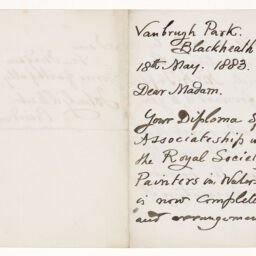 Vanbrugh Park.
Blackheath
18th May. 1883.
Dear Madam.
Your Diploma of
Associateship
the Royal Society
Painters in Water
is now complete
and arrangemen